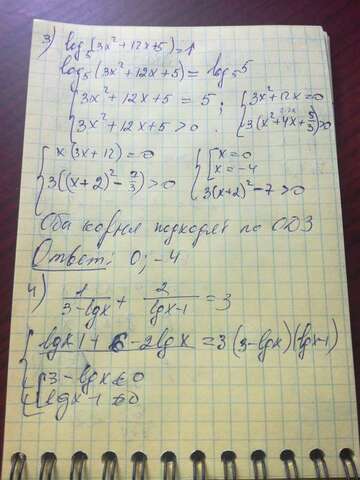 3) log₅(3x²+12x+5)=1
log₅(3x²+12x+5) = log₅5
{3x²+12x+5 = 5 ; {3x²+12x=0
{3x²+12x+5>0 {3(x²+4x+5/3)>0
{x(3x+12)=0 {[x=0
[x=-4
{3((x+2)²-7/3)>0 3(x+2)²-7>0
Оба корня подходят по ОДЗ
Ответ: 0; -4
4) 1/(3-lgx) + 2/(lgx-1) =3
{lgx-1+6-2lgx=3(3-lgx)(lgx-1)
{[3-lgx≠0
[lgx-1≠0